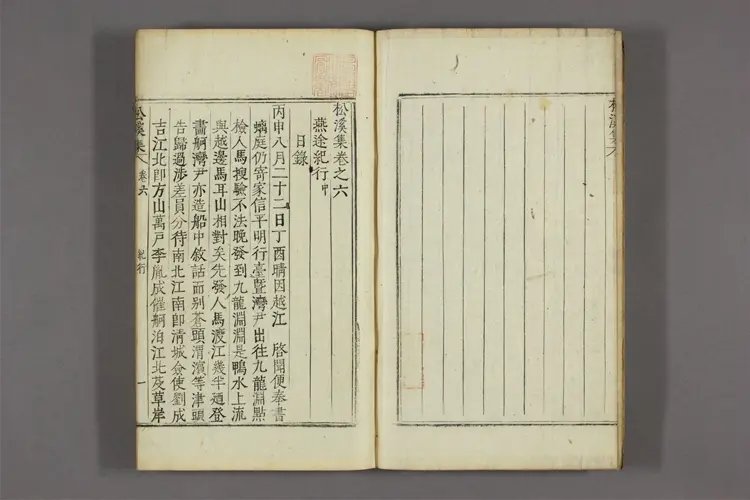 松溪集
松溪集卷之六
燕途紀行中
日錄
丙申八月二十二日丁酉晴因越江 啓聞便奉書
螭庭仍寄家信平明行臺曁灣尹出往九龍淵點
檢人馬搜驗不法晚發到九龍淵淵是鴨水上流
與越邊馬耳山相對矣先發人馬渡江幾半廼登
畵舸灣尹亦造船中敘話而別蒼頭渭濱等津頭
告歸過涉差員分待南北江南卽淸城僉使劉成
吉江北卽方山萬戶李胤成催舸泊江北芟草岸
松溪集 卷六 紀行 一